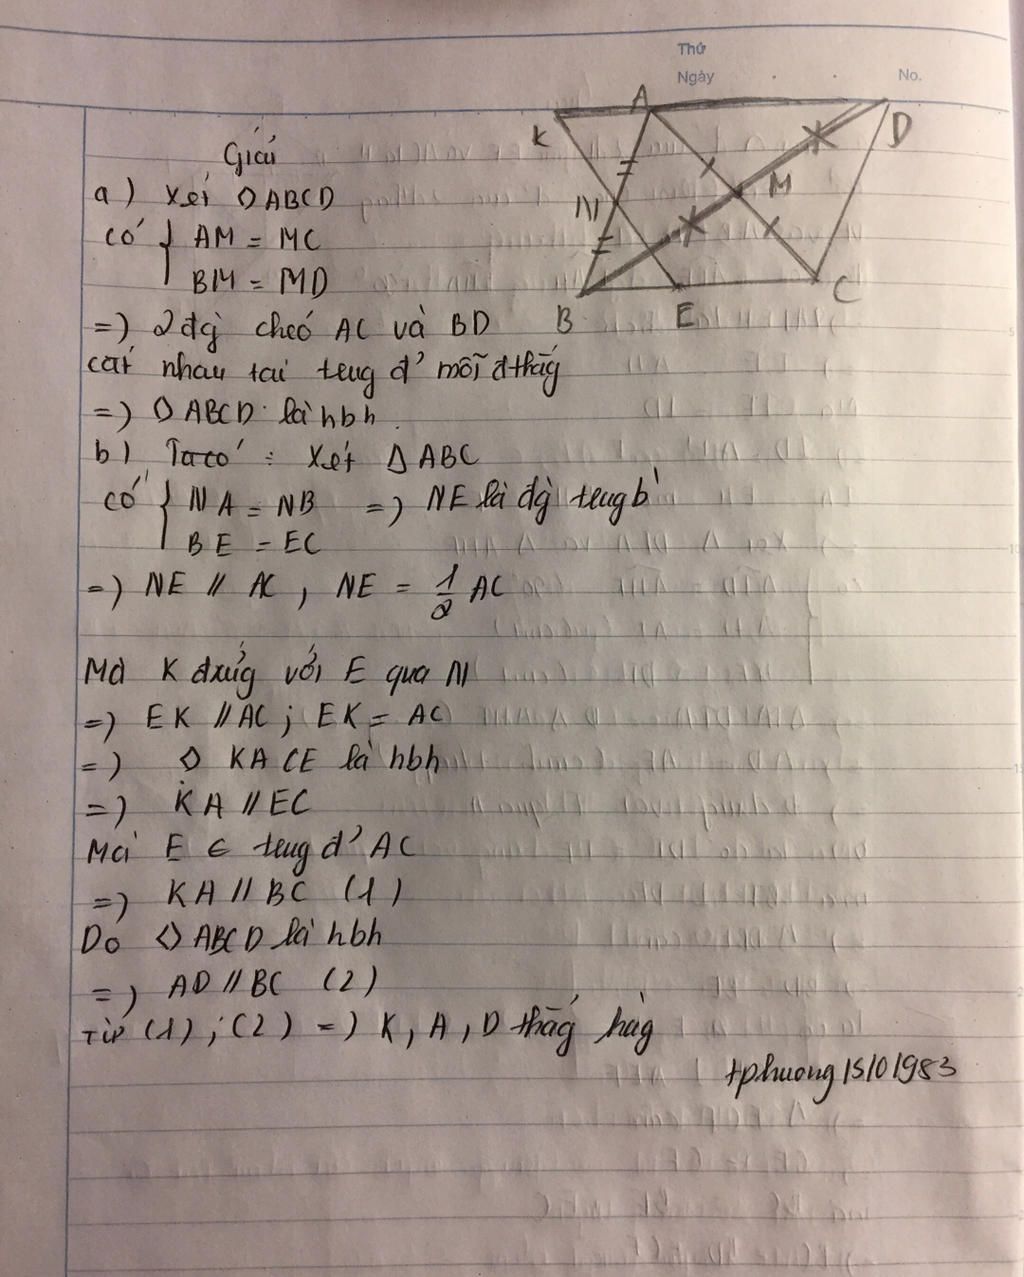 Thứ
Ngày
No.
K
A
D
N
M
B
E
C
Giải
a) Xét ◊ ABCD
có { AM = MC
BM = MD
=) 2 đg̀ chéo AC và BD
cắt nhau tại trug đ' mỗi đthẳg
=) ◊ ABCD là hbh.
b) Ta có : Xét Δ ABC
có { NA = NB =) NE là đg̀ trug b̀
BE = EC
=) NE // AC , NE = 1/2 AC
Mà K đxứg với E qua N
=) EK // AC ; EK = AC
=) ◊ KACE là hbh
=) KA // EC
Mà E ∈ trug đ' AC
=) KA // BC (1)
Do ◊ ABCD là hbh
=) AD // BC (2)
Từ (1) ; (2) =) K, A, D thẳg hàg
tphuong15101983